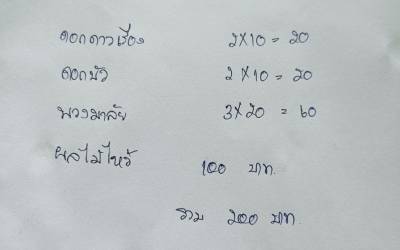 ดอกดาวเรือง 2×10 = 20
ดอกบัว 2×10 = 20
พวงมาลัย 3×20 = 60
ผลไม้ไหว้ 100 บาท.
รวม 200 บาท.